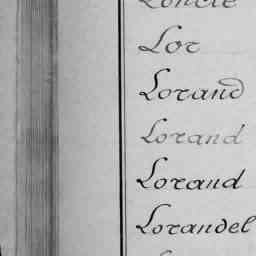 Loncle
Lor
Lorand
Lorand
Loraud
Lorandel